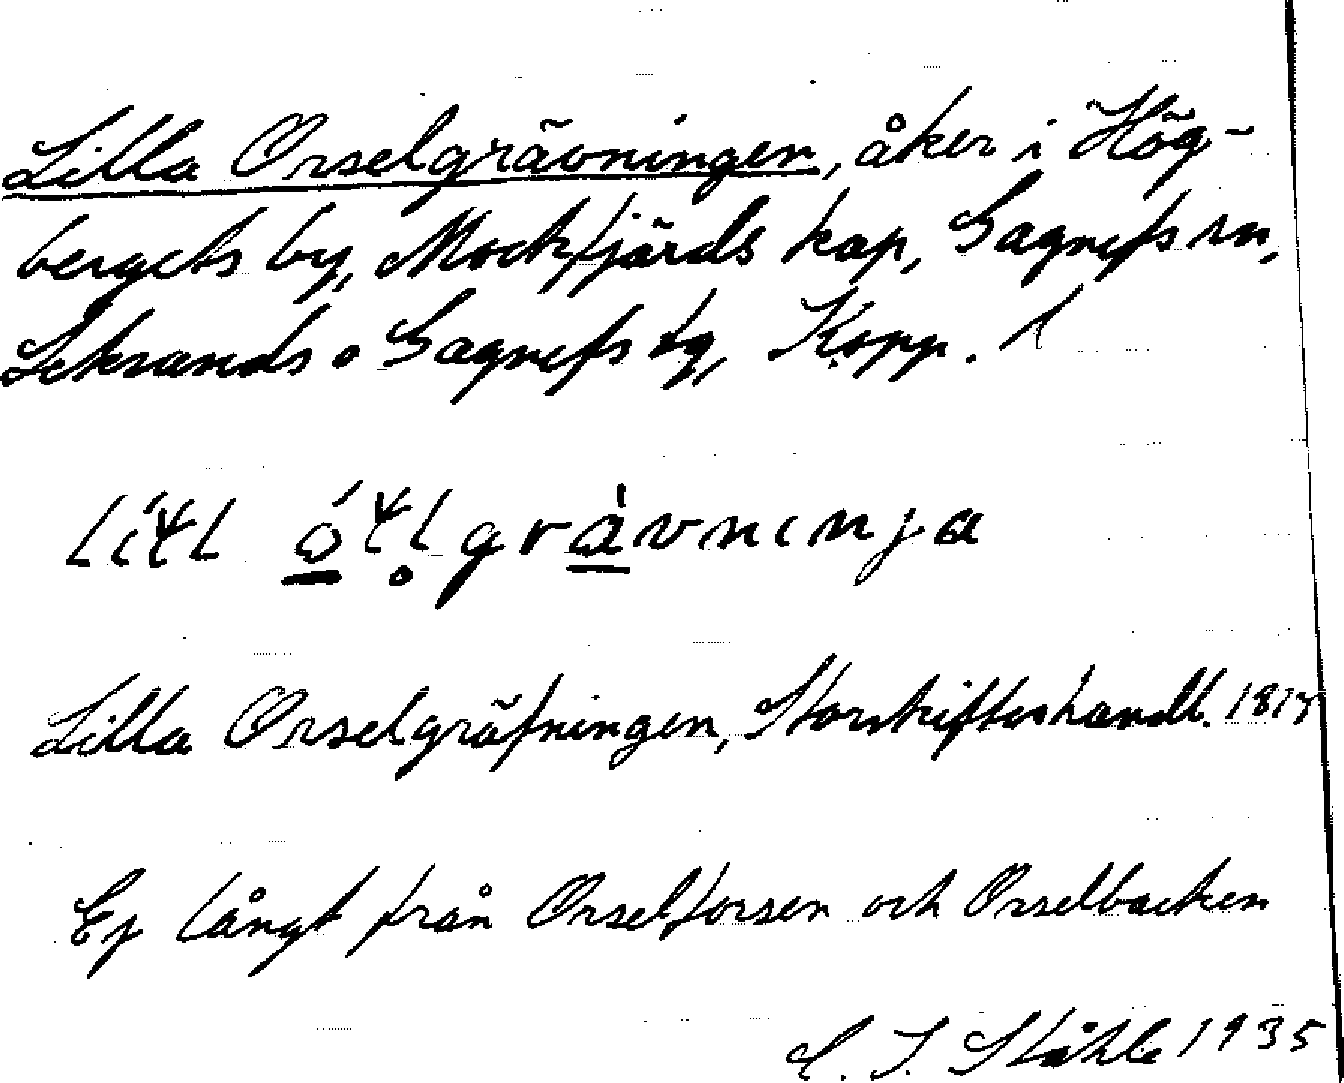 Lilla Orselgrävningen, åker i Hög-
bergets by, Mockfjärds kap, Gagnefs sn,
Leksands o Gagnefs tg, Kopp. l
Lilla Orselgräfningen, Storskifteshandl. 1817
Ej långt från Orselforsen och Orselbacken
C. I. Ståhle 1935